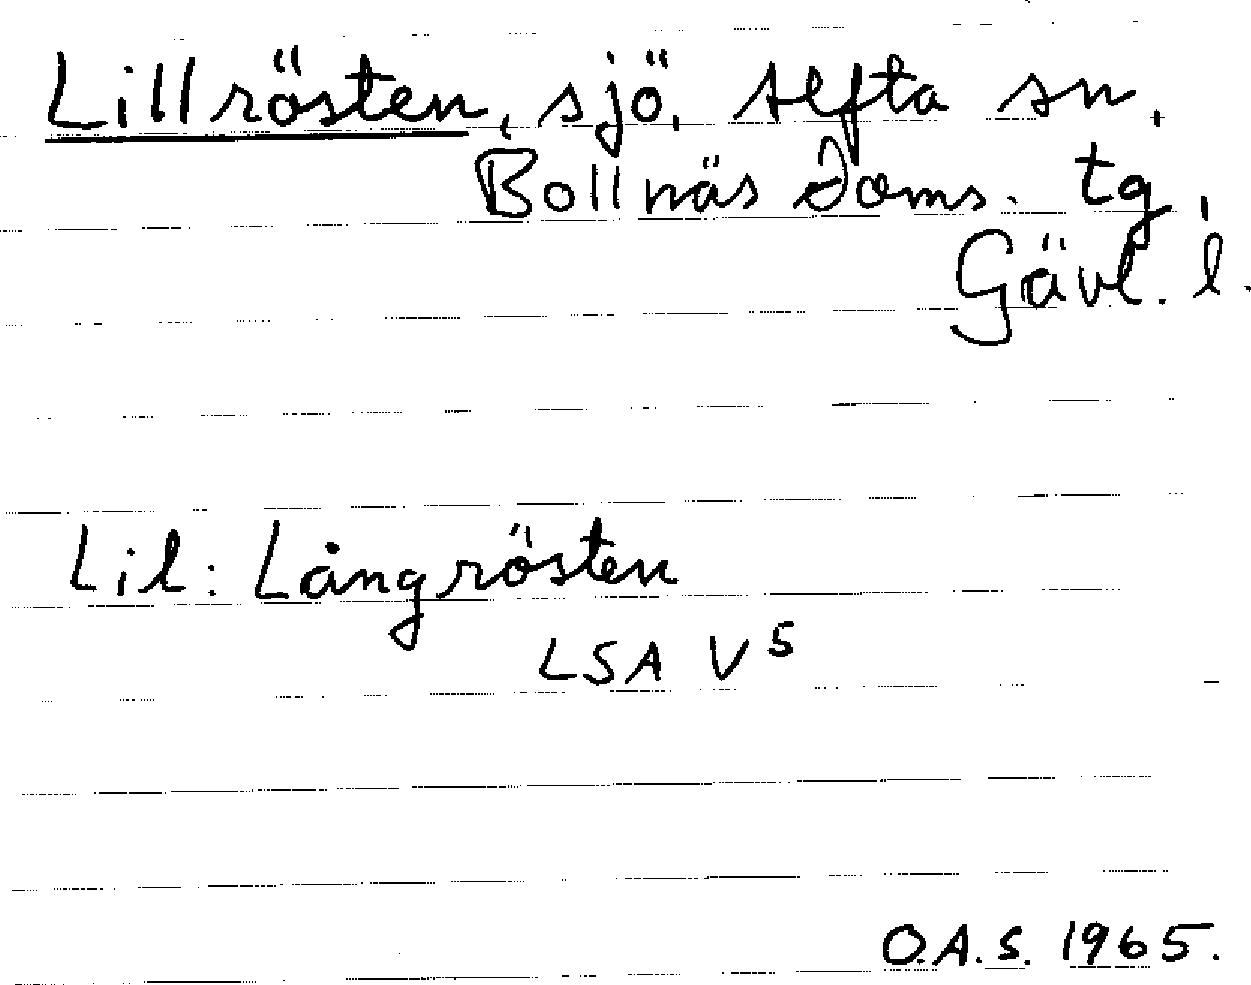 Lillrösten, sjö, Alfta sn,
Bollnäs doms. tg,
Gävl. l.
Lil: Långrösten
LSA V⁵
O.A.S. 1965.